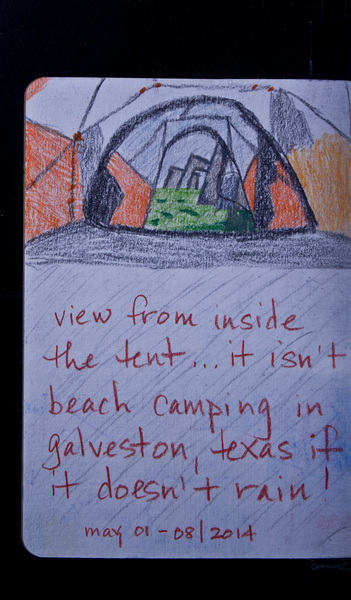 view from inside
the tent... it isn't
beach camping in
galveston, texas if
it doesn't rain!
may 01-08/2014